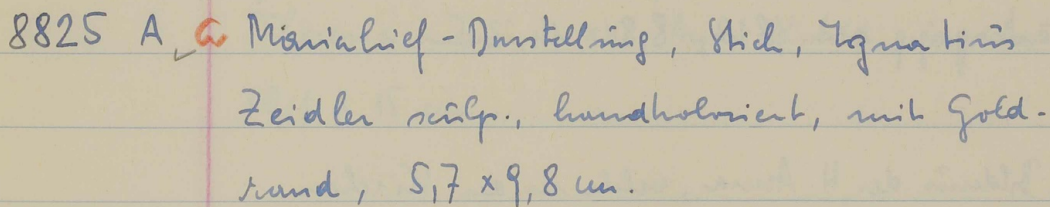 8825 A a Mariahilf-Darstellung, Stich, Ignatius
Zeidler sculp., handkoloriert, mit Gold-
rand, 5,7 x 9,8 cm.